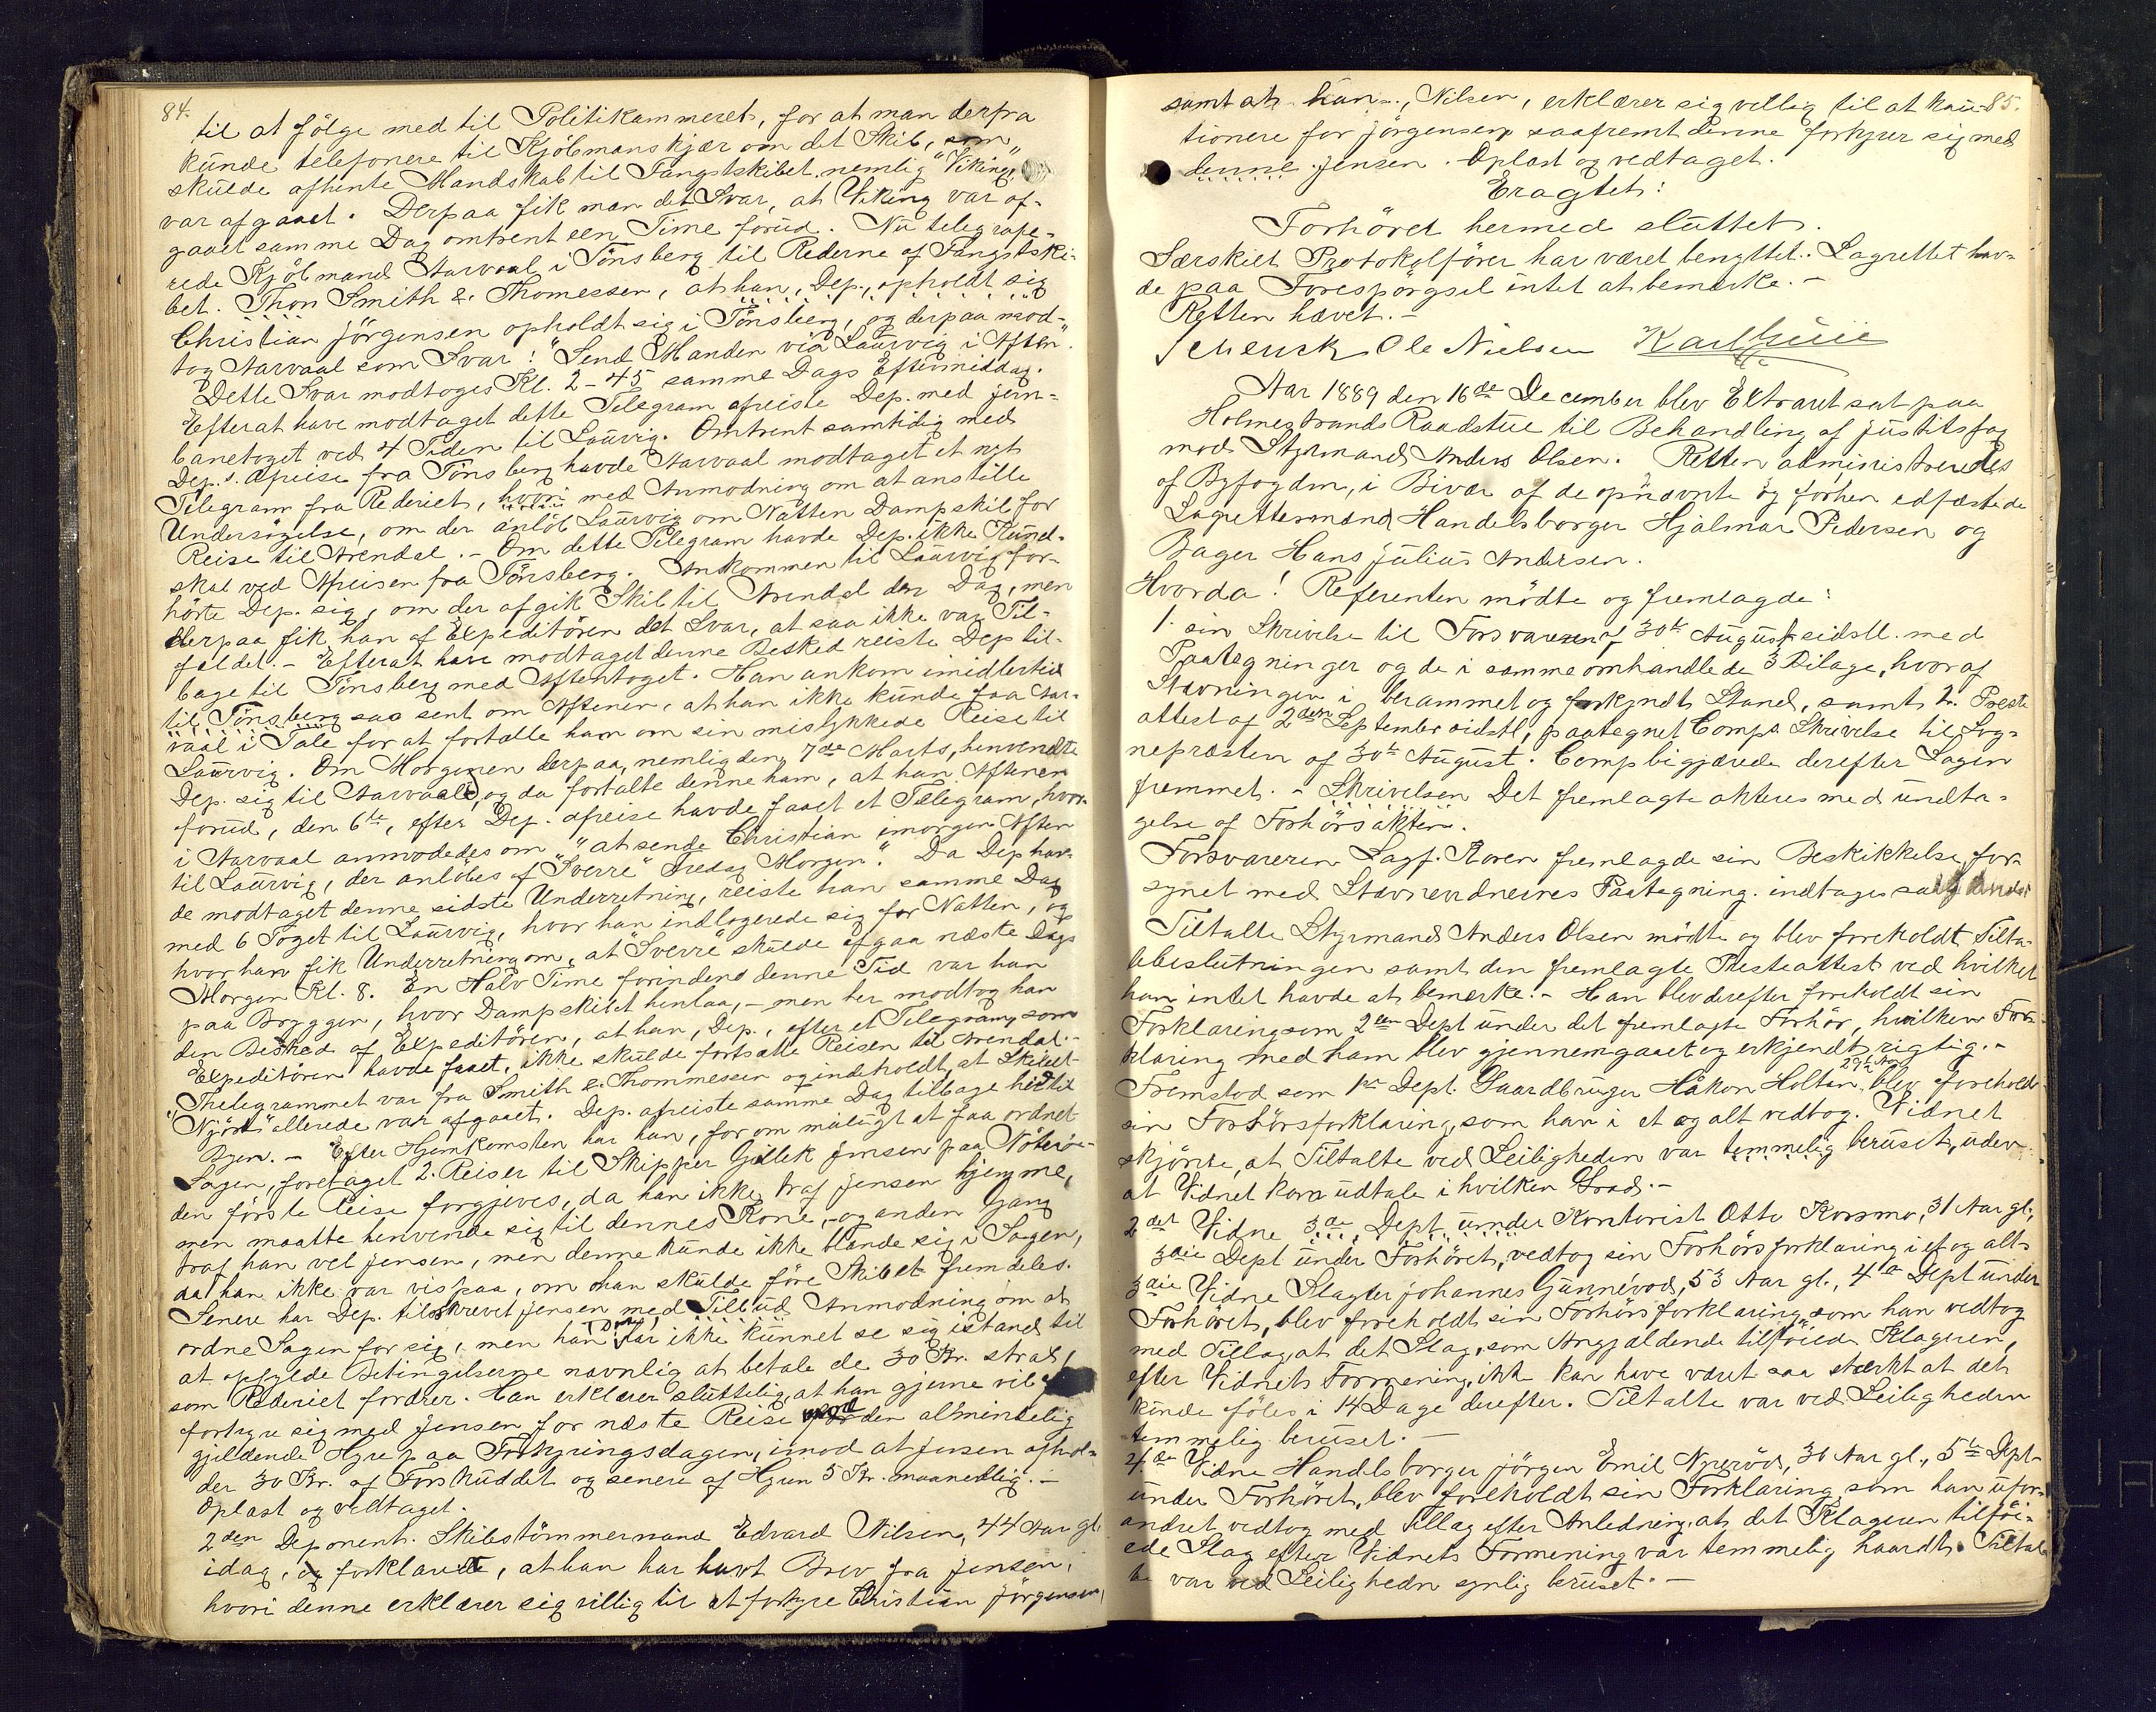 84.
til at følge med til Politikammeret, for at man derfra
kunde telefonere til Kjøbmanskjær om det Skib, som
skulde afhente Mandskab til Fangstskibet, nemlig "Viking",
var afgaaet. Derpaa fik man det Svar, at Viking var af-
gaaet samme Dag omtrent een Time forud. Nu telegrafe-
rede Kjøbmand Aarvaal i Tønsberg til Rederne af Fangstski-
bet. Thor Smith & Thomessen, at han, Dep., opholdt sig
Christian Jörgensen opholdt sig i Tönsberg, og derpaa mod-
tog Aarvaal som Svar: "Send Manden via Laurvig i Aften".
Dette Svar modtoges Kl. 2-45 samme Dags Eftermiddag.
Efter at have modtaget dette Telegram afreiste Dep. med Jern-
banetoget ved 4 Tiden til Laurvig. Omtrent samtidig med
Dep.s. Afreise fra Tönsberg havde Aarvaal modtaget et nyt
Telegram fra Rederiet, hvori med Anmodning om at anstille
Undersögelse, om der anlöb Laurvig om Natten Dampskib for
Reise til Arendal. - Om dette Telegram havde Dep. ikke Kund-
skab ved Afreisen fra Tönsberg. Ankommen til Laurvig for-
hörte Dep. sig, om der afgik Skib til Arendal den Dag, men
derpaa fik han af Expeditören det Svar, at saa ikke var Til-
fældet. - Efterat have modtaget denne Besked reiste Dep til-
bage til Tönsberg med Aftentoget. Han ankom imidlertid
til Tönsberg saa sent om Aftenen, at han ikke kunde faa Aar-
vaal i Tale for at fortælle ham om sin mislykkede Reise til
Laurvig. Om Morgenen derpaa, nemlig den 7de Marts, henvendte
Dep. sig til Aarvaal, og da fortalte denne ham, at han Aftenen
forud, den 6te, efter Dep. afreise havde faaet et Telegram, hvor-
i Aarvaal anmodedes om "at sende Christian imorgen Aften
til Laurvig, der anlöbes af "Sverre" Fredag Morgen." Da Dep hav-
de modtaget denne sidste Underretning, reiste han samme Dag
med 6 Toget til Laurvig, hvor han indlogerede sig for Natten, og
hvor han fik Underretning om, at "Sverre" skulde afgaa næste Dags
Morgen Kl. 8. En Halv Time forinden denne Tid var han
paa Bryggen, hvor Dampskibet henlaa, - men her modtog han
den Besked af Expeditören, at han, Dep., efter et Telegram, som
Expeditören havde faaet, ikke skulde fortsætte Reisen til Arendal. -
Thelegrammet var fra Smith & Thommessen og indeholdt, at Skibet
"Njörd" allerede var afgaaet. Dep. afreiste samme Dag tilbage hertil
Byen. - Efter Hjemkomsten har han, for om muligt at faa ordnet
Sagen, foretaget 2. Reiser til Skipper Gullek Jensen paa Nöterö -
den förste Reise forgjeves, da han ikke traf Jensen hjemme,
men maatte henvende sig til dennes Kone, - og anden Gang
traf han vel Jensen, men denne kunde ikke blande sig i Sagen,
da han ikke var vis paa, om han skulde före Skibet fremdeles.
Senere har Dep. tilskrevet Jensen med Tilbud Anmodning om at
ordne Sagen for sig, men han, Dep, har ikke kunnet se sig istand til
at opfylde Betingelserne navnlig at betale de 30 Kr. strax,
som Rederiet fordrer. Han erklærer sluttelig, at han gjerne vil
forhyre sig med Jensen for næste Reise mod den almindelig
gjeldende Hyre paa Forhyringsdagen, imod at Jensen afhol-
der 30 Kr. af Forskuddet og senere af Hyren 5 Kr. maanedlig. -
Oplæst og vedtaget.
2den Deponent. Skibstömmermand Edvard Nilsen, 44 Aar gl.
idag, og forklarede, at han har havt Brev fra Jensen,
hvori denne erklærer sig villig til at forhyre Christian Jörgensen,
85.
samt at han, Nilsen, erklærer sig villig til at kau-
tionere for Jörgensen saafremt denne forhyrer sig med
denne Jensen. Oplæst og vedtaget.
Eragtet:
Forhöret hermed sluttet.
Særskilt Protokolförer har været benyttet. Lagrettet hav-
de paa Forespörgsel intet at bemærke. -
Retten hævet. -
Schenck Ole Nielsen Karl
Aar 1889 den 16de December blev Extraret sat paa
Holmestrands Raadstue til Behandling af Justitssag
mod Styrmand Anders Olsen. Retten administreredes
af Byfogden, i Bivær af de opnævnte og forhen edfæstede
Lagrettesmænd Handelsborger Hjalmar Pedersen og
Bager Hans Julius Andersen.
Hvorda! Referenten mödte og fremlagde:
1. sin Skrivelse til Forsvareren af 30te August sidstl. med
Paategninger og de i samme omhandlede 3 Bilage, hvoraf
Stævningen i berammet og forkyndt Stand, samt 2. Preste
attest af 2den September sidstl, paategnet Comps. Skrivelse til Sog-
nepræsten af 30te August. Comp begjærede derefter Sagen
fremmet. - Skrivelsen Det fremlagte akteres med undta-
gelse af Forhörsakten.
Forsvareren Sagf. Roren fremlagde sin Beskikkelse, for-
synet med Stævnevidnernes Paategning. indtages
Tiltalte Styrmand Anders Olsen mödte og blev foreholdt Tilta-
lebeslutningen samt den fremlagte Presteattest ved hvilket
han intet havde at bemerke. - Han blev derefter foreholdt sin
Forklaring som 2den Dept under det fremlagte Forhör, hvilken For-
klaring med ham blev gjennemgaaet og erkjendt rigtig. -
Fremstod som 1ste Dept. Gaardbruger Håkon Holtan 29 Aar blev foreholdt
sin Forhörsforklaring, som han i et og alt vedtog. Vidnet
skjönte, at Tiltalte ved Leiligheden var temmelig beruset, uden
at Vidnet kan udtale i hvilken Grad. -
2det Vidne 3die Dept under Kontorist Otto Kossmo, 31 Aar gl.,
3die Dept under Forhöret, vedtog sin Forhörsforklaring i et og alt
3die Vidne Slagter Johannes Gunnerød, 53 Aar gl., 4de Dept under
Forhöret, blev foreholdt sin Forhörsforklaring, som han vedtog
med Tillæg, at det Slag, som Angjældende tilföiede Klageren,
efter Vidnets Formening, ikke kan have været saa stærkt at det
kunde föles i 14 Dage derefter. Tiltalte var ved Leiligheden
temmelig beruset. -
4de Vidne Handelsborger Jörgen Emil Nyeröd, 30 Aar gl., 5te Dept
under Forhöret, blev foreholdt sin Forklaring som han ufor-
andret vedtog med tillæg efter Anledning, at det Klageren tilföi-
ede Slag efter Vidnets Formening var temmelig haardt. Tiltal
te var ved Leiligheden synlig beruset. -